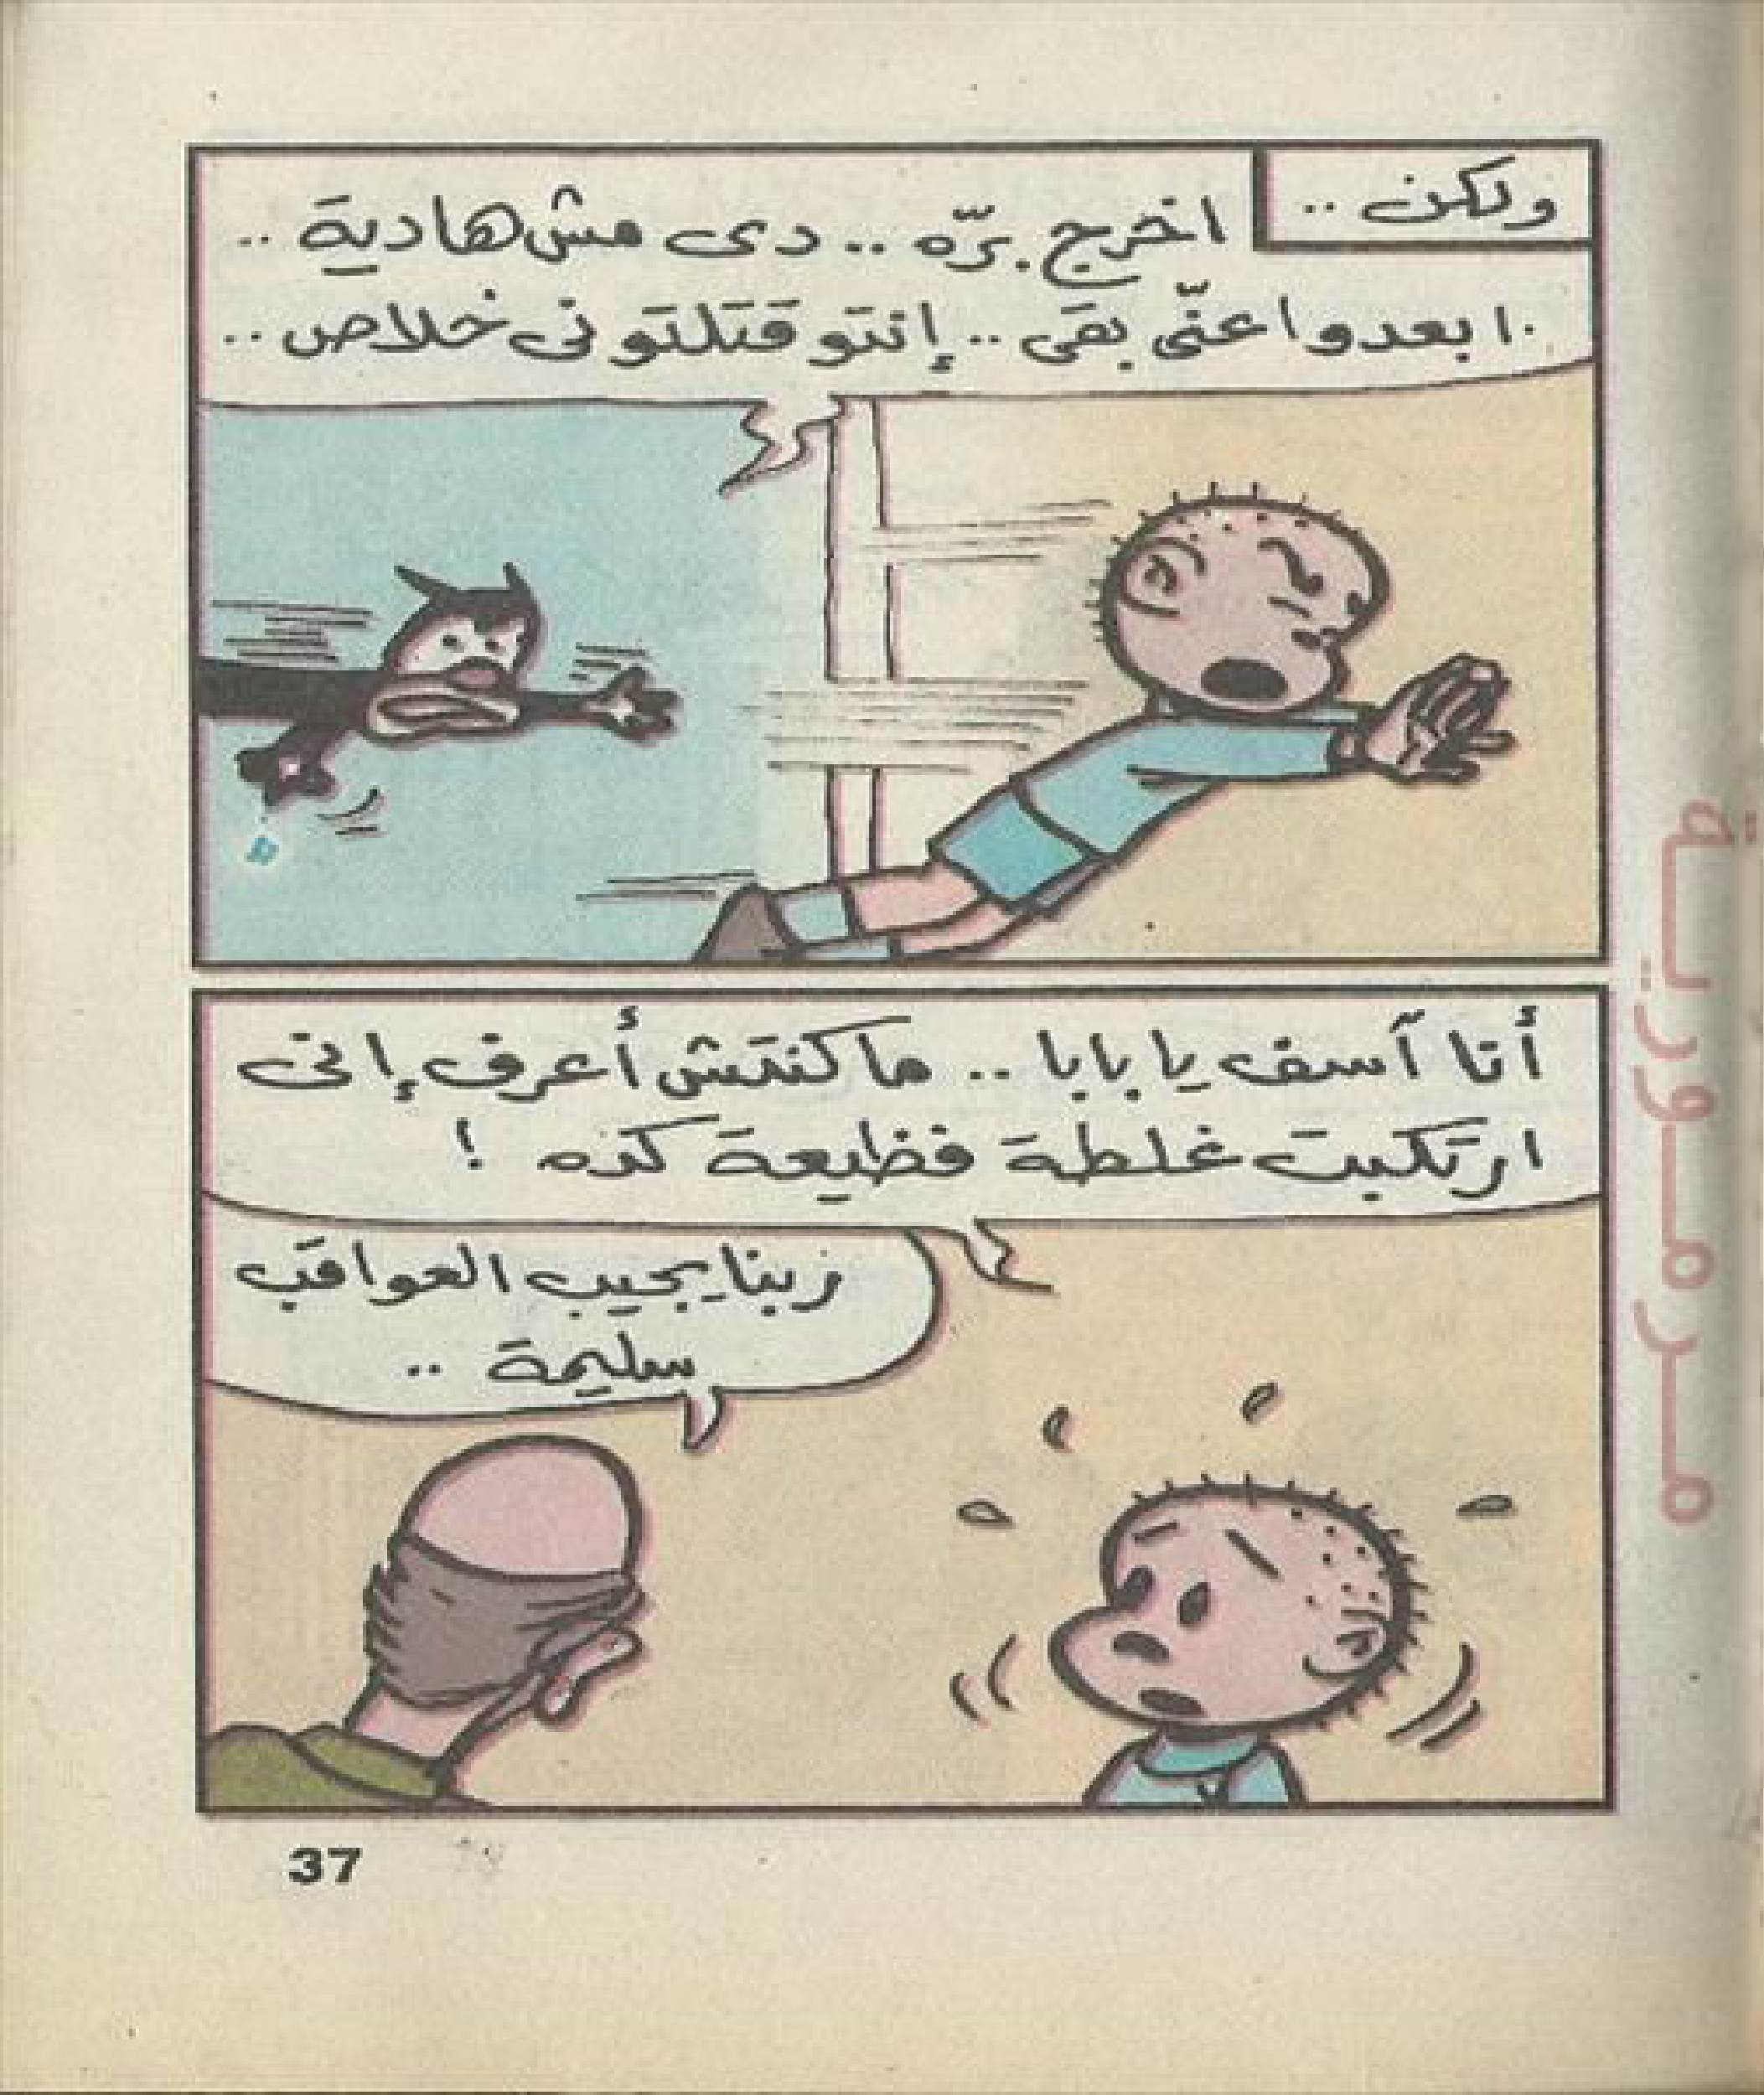 ولكن ..
اخرج برّه .. دى مش هادية ..
ابعدوا عنّى بقى .. إنتو قتلتونى خلاص ..
أنا آسف يا بابا .. ما كنتش أعرف إنى
ارتكبت غلطة فظيعة كده !
ربنا يجيب العواقب
سليمة ..
مرمورية
37